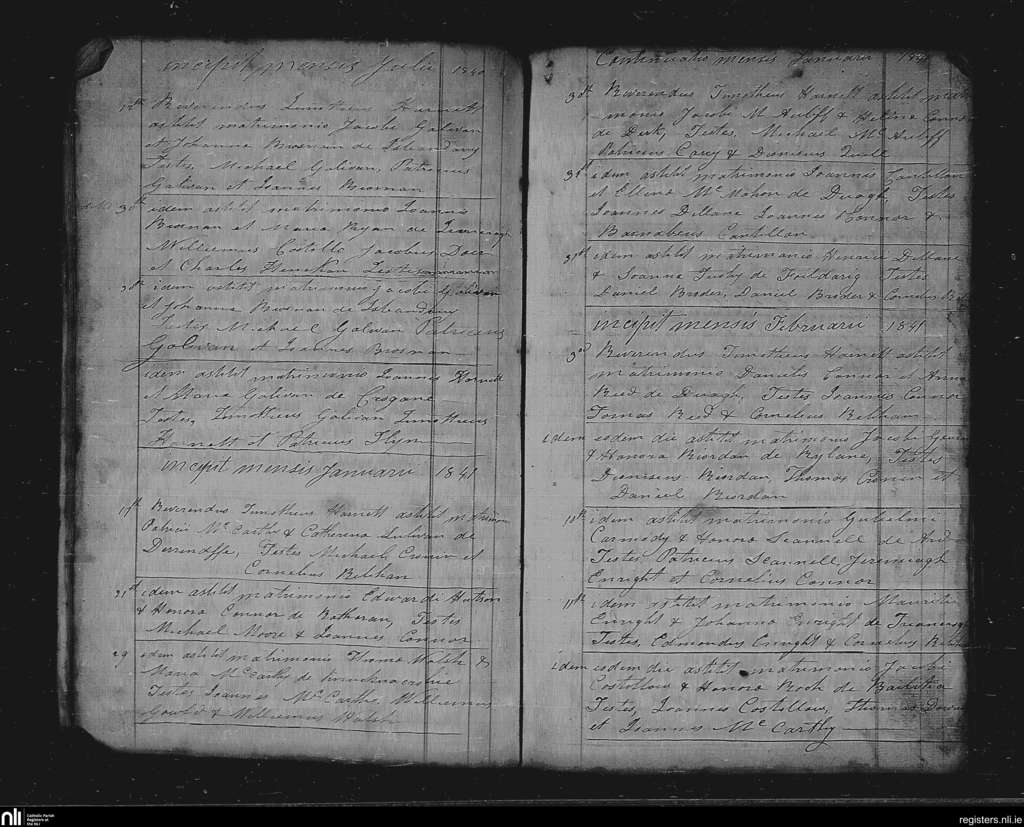 incipit mensis Julii 1840
12th Reverendus Timotheus Harnett
astitit matrimonio Jacobi Galivan
et Johanna Brosnan de
Testes Michael Galivan, Patricius
Galivan et Joannes Brosnan
30th idem astitit matrimonio Joannis
Brosnan et Maria Ryan de
Williemus Costello Jacobus
et Charles Testes
30th idem astitit matrimonio Jacobi Galivan
et Johanna Brosnan de
Testes Michael Galivan Patricius
Galivan et Joannes Brosnan
idem astitit matrimonio Joannis Harnett
et Maria Galivan de Crogane
Testes, Timotheus Galivan Timotheus
Harnett et Patricius Flyn
incipit mensis Januarii 1841
17th Reverendus Timotheus Harnett astitit matrimon
Patricii Mc Cartha & Catherina Sulivan de
Testes Michael Cronin et
Cornelius Relihan
21st idem astitit matrimonio Edwardi Hutson
& Honora Connor de Testes
Michael Moore & Joannes Connor
29 idem astitit matrimonio Thoma Walsh &
Maria McCartha de
Testes Joannes McCartha, Williemus
& Williemus Walsh
Continuatio mensis Januarii 1841
30th Reverendus Timotheus Harnett astitit matri
monio Jacobi McAuliff & Hellena Connor
de Testes, Michael McAuliff
Patricius Carey & Dionisius
31st idem astitit matrimonio Joannis Cantillon
et Ellena McMahon de Duagh, Testes
Joannes Dillane Joannes OConnor &
Barnabeus Cantillon
31st idem astitit matrimonio Henrici Dillane
& Joanna de Testes
Daniel Broder, Daniel Broder & Cornelius
incipit mensis Februarii 1841
3rd Reverendus Timotheus Harnett astitit
matrimonio Danielis Connor et Anna
Reed de Duagh, Testes Joannis Connor
Tomas Reed & Cornelius Relihan
idem eodem die astitit matrimonio Jacobi
& Honora Riordan de Rylane, Testes
Dionisius Riordan, Thomas Cronin et
Daniel Riordan
10th idem astitit matrimonio Gulielmi
Carmody & Honora Scannell de
Testes Patricius Scannell, Jeremiagh
Enright et Cornelius Connor
11th idem astitit matrimonio Mauritii
Enright & Johanna Enright de
Testes, Edmondus Enright & Cornelius
idem eodem die astitit matrimonio Jacobi
Costellow & Honora Roch de
Testes, Joannes Costellow, Thomas
et Joannes McCarthy
nli
Catholic Parish
Registers at
the NLI
registers.nli.ie